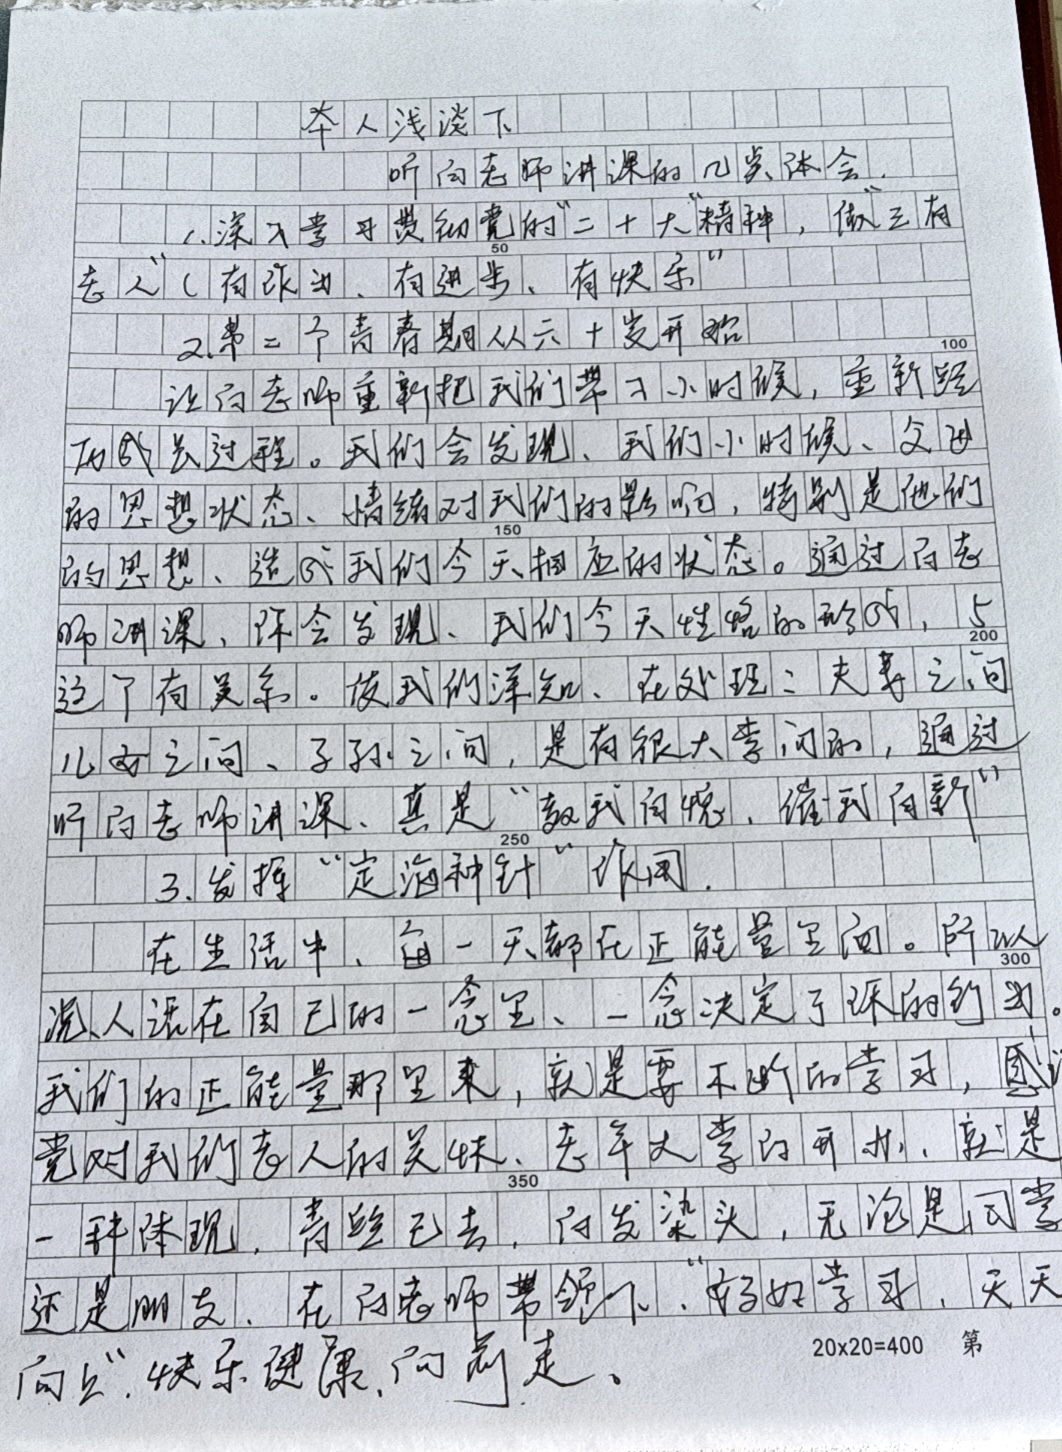 本人浅谈下
听向老师讲课的几点体会.
1.深入学习贯彻党的"二十大"精神，做"三有
老人"(有作为、有进步、有快乐"
50
2.第二个青春期从六十岁开始
100
让向老师重新把我们带入小时候，重新经
历成长过程。我们会发现、我们小时候、父母
的思想状态、情绪对我们的影响，特别是他们
150
的思想、造成我们今天相应的状态。通过向老
师讲课、你会发现、我们今天性格的形成，与
200
这个有关系。使我们深知、在处理：夫妻之间
儿女之间、子孙之间，是有很大学问的，通过
听向老师讲课、真是"教我向悦、催我向新"
250
3.发挥"定海神针"作用.
在生活中、每一天都在正能量里面。所以
300
说、人活在自己的一念里、一念决定了你的行为。
我们的正能量那里来，就是要不断的学习，感谢
党对我们老人的关怀、老年大学的开办、就是
350
一种体现，青丝已去，白发染头，无论是同学
还是朋友、在向老师带领下、"好好学习、天天
向上"、快乐健康、向前走。
20x20=400 第